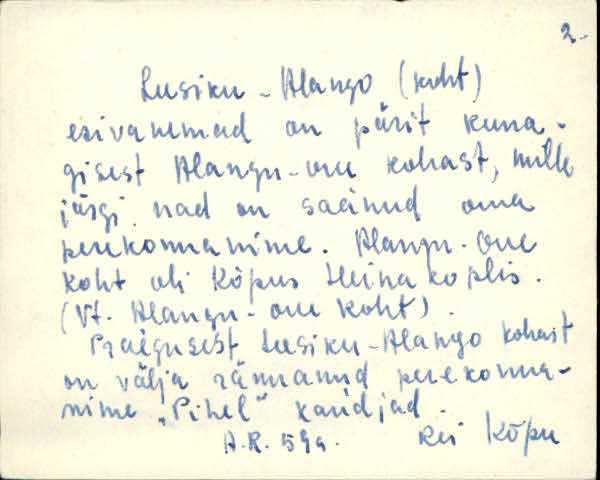 2.
Lusiku-Alango (koht)
esivanemad on pärit kuna-
gisest Alangu-oue kohast, mille
järgi nad on saanud oma
perekonnanime. Alangu-oue
koht oli Kõpus Heinakoplis.
(Vt. Alangu-oue koht).
Praegusest Lusiku-Alango kohast
on välja rännanud perekonna-
nime "Pihel" kandjad.
A.R. 59a. Rei Kõpu